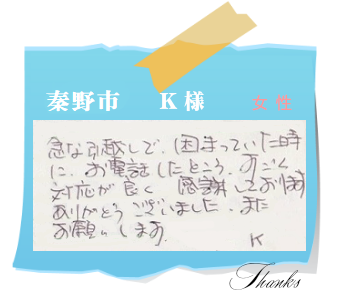 秦野市 K様 女性
急な引越しで、困まっていた時
に、お電話したところ、すごく
対応が良く 感謝しております
ありがとうございました。また
お願いします。
K
Thanks